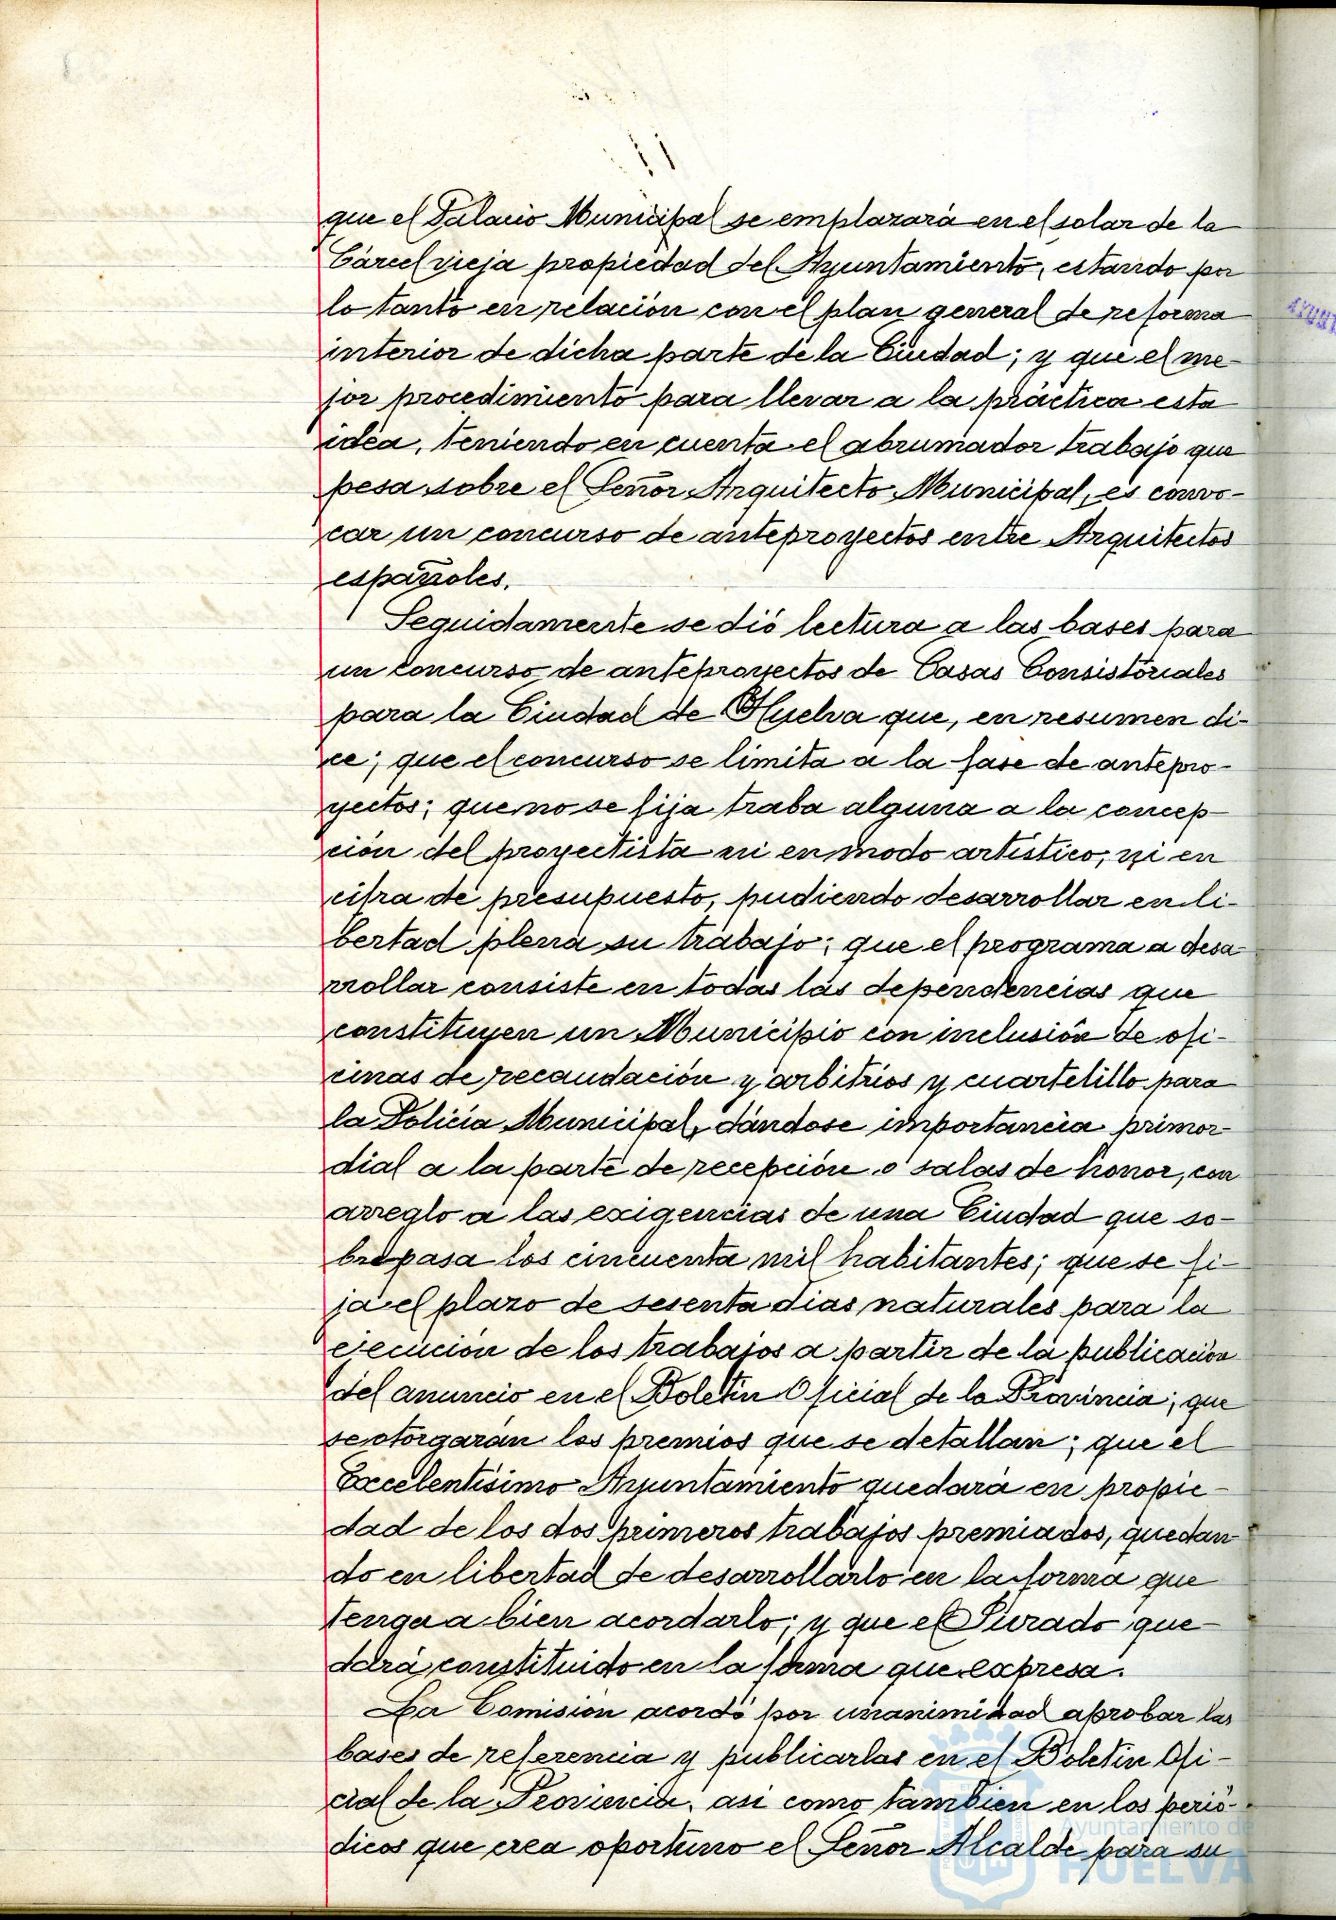 que el Palacio Municipal se emplazará en el solar de la
Cárcel vieja propiedad del Ayuntamiento, estando por
lo tanto en relación con el plan general de reforma
interior de dicha parte de la Ciudad; y que el me-
jor procedimiento para llevar a la práctica esta
idea, teniendo en cuenta el abrumador trabajo que
pesa sobre el Señor Arquitecto Municipal, es convo-
car un concurso de anteproyectos entre Arquitectos
españoles.
Seguidamente se dió lectura a las bases para
un concurso de anteproyectos de Casas Consistoriales
para la Ciudad de Huelva que, en resumen di-
ce; que el concurso se limita a la fase de antepro-
yectos; que no se fija traba alguna a la concep-
ción del proyectista ni en modo artístico, ni en
cifra de presupuesto, pudiendo desarrollar en li-
bertad plena su trabajo; que el programa a desa-
rrollar consiste en todas las dependencias que
constituyen un Municipio con inclusión de ofi-
cinas de recaudación y arbitrios y cuartelillo para
la Policía Municipal, dándose importancia primor-
dial a la parte de recepción o salas de honor, con
arreglo a las exigencias de una Ciudad que so-
brepasa los cincuenta mil habitantes; que se fi-
ja el plazo de sesenta dias naturales para la
ejecución de los trabajos a partir de la publicación
del anuncio en el Boletín Oficial de la Provincia; que
se otorgarán los premios que se detallan; que el
Excelentísimo Ayuntamiento quedará en propie-
dad de los dos primeros trabajos premiados, quedan-
do en libertad de desarrollarlo en la forma que
tenga a bien acordarlo; y que el Jurado que-
dará constituido en la forma que expresa.
La Comisión acordó por unanimidad aprobar las
bases de referencia y publicarlas en el Boletín Ofi-
cial de la Provincia, asi como tambien en los perió-
dicos que crea oportuno el Señor Alcalde para su
Ayuntamiento de
HUELVA